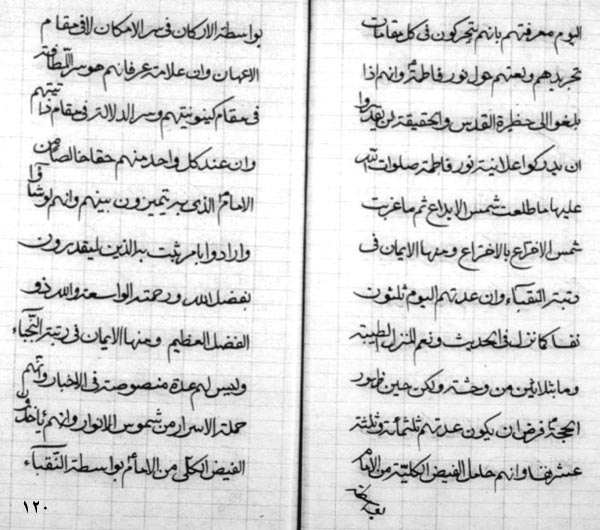 اليوم معرفتهم بانهم يتحركون فى كل مقامات
تجريدهم ونعتهم حول نور فاطمة ع وانهم اذا
بلغوا الى حظيرة القدس والحقيقة لن يقدروا
ان يدركوا علانية نور فاطمة صلوات الله
عليها ما طلعت شمس الابداع ثم ما غربت
شمس الاختراع بالاختراع ومنها الايمان فى
رتبة النقباء وان عدتهم اليوم ثلثون
نفسا كما نزل فى الحديث ونعم المنزل الطيبة
وما بثلاثين من وحشة ولكن حين ظهور
الحجة ع فرض ان يكون عدتهم ثلثمائة وثلثة
عشر نفسا وانهم حامل الفيض الكلية من الامام
بواسطة الاركان فى سر الامكان لا فى مقام
الاعيان وان علامة عرفانهم هو سر اللطافة
فى مقام كينونيتهم وسر الدلالة فى مقام ذاتيتهم
وان عند كل واحد منهم حقا من
الامام الذى به يتميزون بينهم وانهم لو شاؤا
وارادوا بامر يثبت بالذين ليقدرون
بفضل الله ورحمته الواسعة والله ذو
الفضل العظيم ومنها الايمان فى رتبة النجباء
وليس لهم عدة منصوصة فى الاخبار وانهم
حملة الاسرار من شموس الانوار وانهم ياخذون
الفيض الكلى من الامام ع بواسطة النقباء
١٢٠